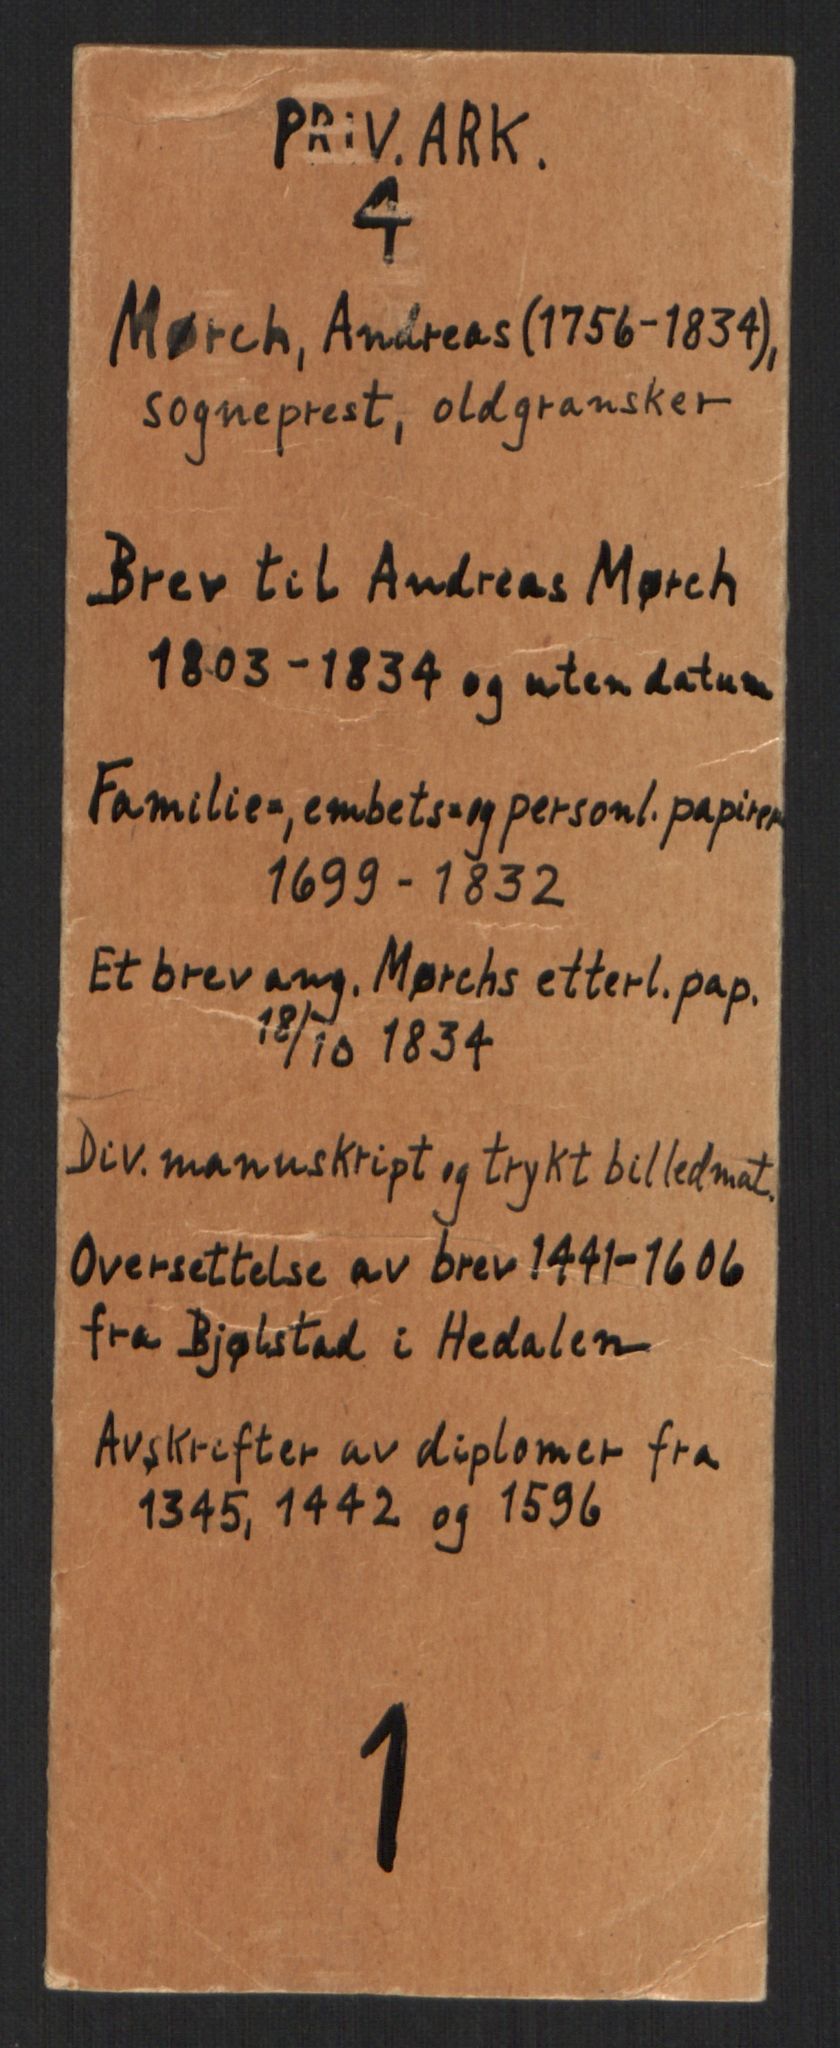 PRIV. ARK.
4
Mørch, Andreas (1756-1834),
sogneprest, oldgransker
Brev til Andreas Mørch
1803-1834 og uten datum
Familie=, embets= og personl. papirer
1699-1832
Et brev ang. Mørchs etterl. pap.
18/10 1834
Div. manuskript og trykt billedmat.
Oversettelse av brev 1441-1606
fra Bjølstad i Hedalen
Avskrifter av diplomer fra
1345, 1442 og 1596
1